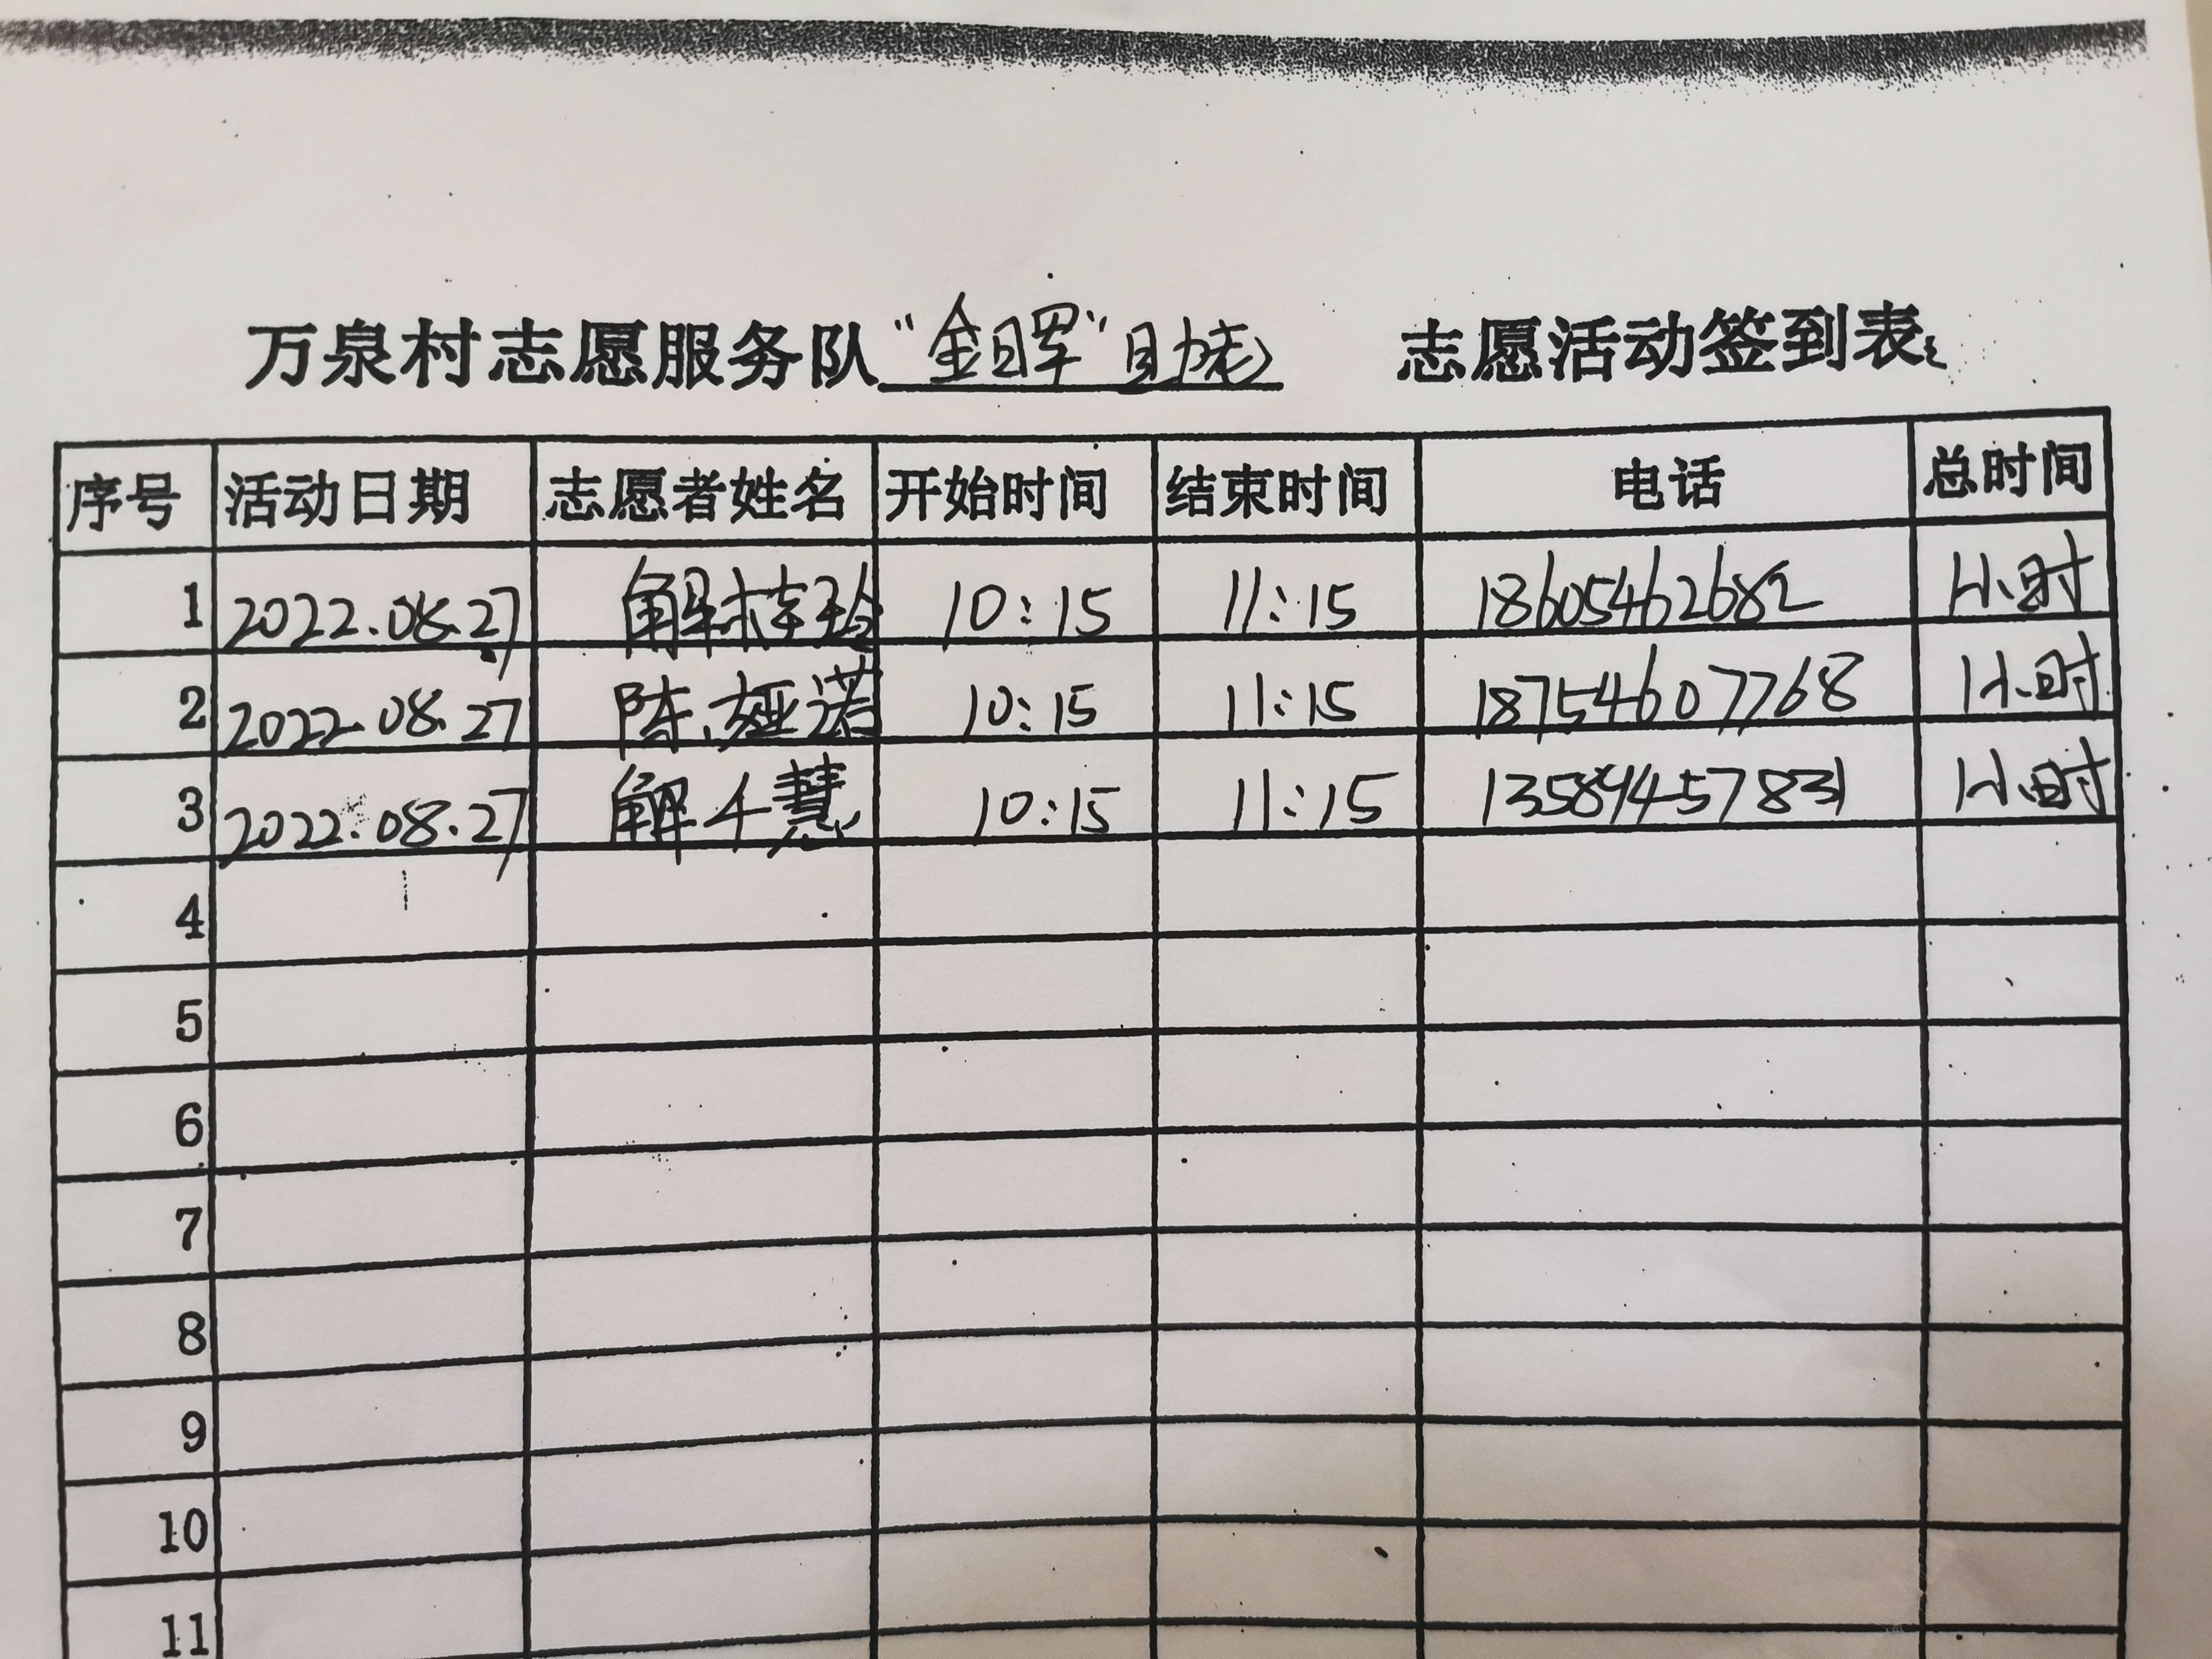 万泉村志愿服务队“金晖”助老 志愿活动签到表
序号 活动日期 志愿者姓名 开始时间 结束时间 电话 总时间
1 2022.08.27 解 10:15 11:15 18605462682 1小时
2 2022.08.27 陈娅诺 10:15 11:15 18754607768 1小时
3 2022.08.27 解千慧 10:15 11:15 1小时
4
5
6
7
8
9
10
11